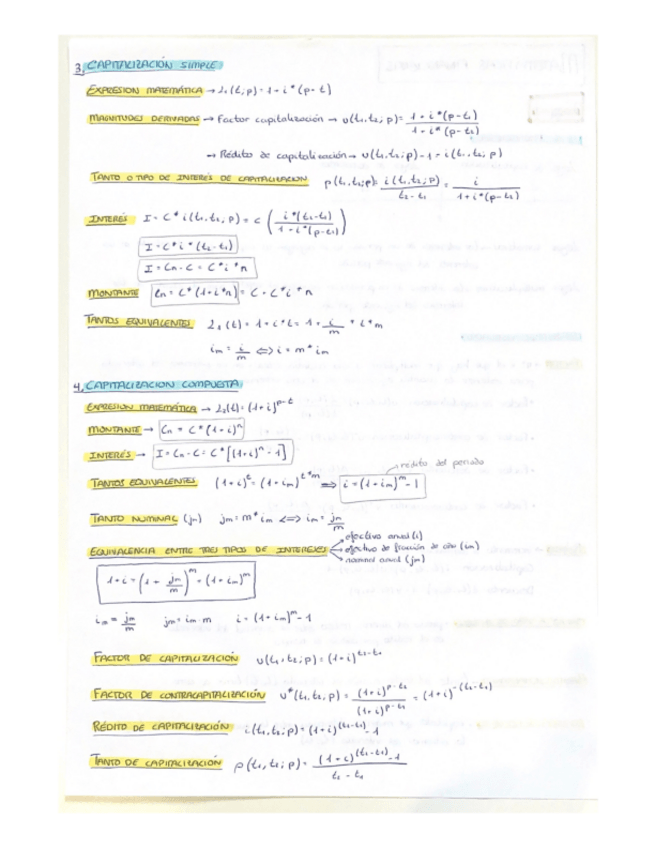 3. CAPITALIZACIÓN SIMPLE
EXPRESION MATEMÁTICA → L₁(t;p) = 1+i*(p-t)
MAGNITUDES DERIVADAS → Factor capitalización → u(t₁,t₂;p) = 1+i*(p-t₁) / 1+i*(p-t₂)
→ Rédito de capitalización → u(t₁,t₂;p)-1 = i(t₁,t₂;p)
TANTO O TIPO DE INTERÉS DE CAPITALIZACION ρ(t₁,t₂;p) = i(t₁,t₂;p) / t₂-t₁ = i / 1+i*(p-t₂)
INTERÉS I = C* i(t₁,t₂,p) = C ( i*(t₂-t₁) / 1+i*(p-t₂) )
I = C*i*(t₂-t₁)
I = Cn-C = C*i*n
MONTANTE Cn = C*(1+i*n) = C+C*i*n
TANTOS EQUIVALENTES L₁(t) = 1+i*t = 1+ i/m * t*m
im = i/m ⟺ i = m*im
4. CAPITALIZACION COMPUESTA
EXPRESION MATEMÁTICA → L₂(t) = (1+i)^p-t
MONTANTE → Cn = C*(1+i)^n
INTERÉS → I = Cn-C = C*[(1+i)^n - 1]
rédito del periodo
TANTOS EQUIVALENTES (1+i)^t = (1+im)^t*m ⟹ i = (1+im)^m - 1
TANTO NOMINAL (jm) jm = m*im ⟺ im = jm/m
EQUIVALENCIA ENTRE TRES TIPOS DE INTERESES
efectivo anual (i)
efectivo de fracción de año (im)
nominal anual (jm)
1+i = (1 + jm/m)^m = (1+im)^m
im = jm/m jm = im·m i = (1+im)^m - 1
FACTOR DE CAPITALIZACIÓN u(t₁,t₂;p) = (1+i)^t₂-t₁
FACTOR DE CONTRACAPITALIZACIÓN u*(t₁,t₂,p) = (1+i)^p-t₂ / (1+i)^p-t₁ = (1+i)^-(t₂-t₁)
RÉDITO DE CAPITALIZACIÓN i(t₁,t₂;p) = (1+i)^(t₂-t₁) - 1
TANTO DE CAPITALIZACIÓN ρ(t₁,t₂;p) = (1+i)^(t₂-t₁) - 1 / t₂-t₁